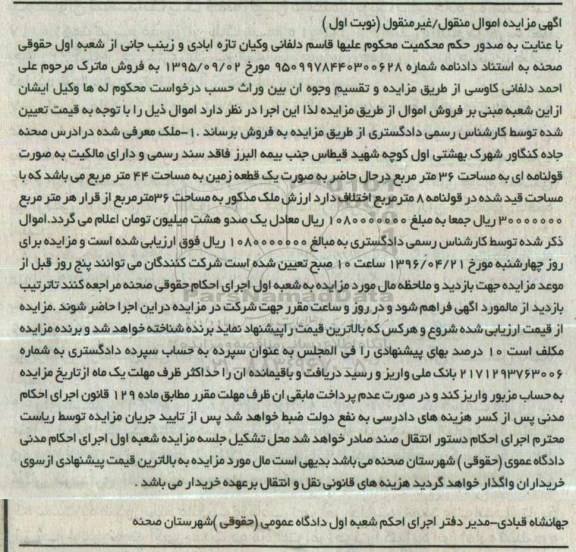 اگهی مزایده اموال منقول/غیرمنقول (نوبت اول )
با عنایت به صدور حکم محکمیت محکوم علیها قاسم دلفانی وکیان تازه ابادی و زینب جانی از شعبه اول حقوقی
صحنه به استناد دادنامه شماره ۹۵۰۹۹۷۸۴۴۰۳۰۰۶۲۸ مورخ ۱۳۹۵/۰۹/۰۲ به فروش ماترک مرحوم علی
احمد دلفانی کاوسی از طریق مزایده و تقسیم وجوه ان بین وراث حسب درخواست محکوم له ها وکیل ایشان
ازاین شعبه مبنی بر فروش اموال از طریق مزایده لذا این اجرا در نظر دارد اموال ذیل را با توجه به قیمت تعیین
شده توسط کارشناس رسمی دادگستری از طریق مزایده به فروش برساند .۱-ملک معرفی شده درادرس صحنه
جاده کنگاور شهرک بهشتی اول کوچه شهید قیطاس جنب بیمه البرز فاقد سند رسمی و دارای مالکیت به صورت
قولنامه ای به مساحت ۳۶ متر مربع درحال حاضر به صورت یک قطعه زمین به مساحت ۴۴ متر مربع می باشد که با
مساحت قید شده در قولنامه ۸ مترمربع اختلاف دارد ارزش ملک مذکور به مساحت ۳۶مترمربع از قرار هر متر مربع
۳۰۰۰۰۰۰۰ ریال جمعا به مبلغ ۱۰۸۰۰۰۰۰۰۰ ریال معادل یک صدو هشت میلیون تومان اعلام می گردد.اموال
ذکر شده توسط کارشناس رسمی دادگستری به مبالغ ۱۰۸۰۰۰۰۰۰۰ ریال فوق ارزیابی شده است و مزایده برای
روز چهارشنبه مورخ ۱۳۹۶/۰۴/۲۱ ساعت ۱۰ صبح تعیین شده است شرکت کنندگان می توانند پنج روز قبل از
موعد مزایده جهت بازدید و ملاحظه مال مورد مزایده به شعبه اول اجرای احکام حقوقی صحنه مراجعه کنند تاترتیب
بازدید از مالمورد اگهی فراهم شود و در روز و ساعت مقرر جهت شرکت در مزایده دراین اجرا حاضر شوند .مزایده
از قیمت ارزیابی شده شروع و هرکس که بالاترین قیمت را پیشنهاد نماید برنده شناخته خواهد شد و برنده مزایده
مکلف است ۱۰ درصد بهای پیشنهادی را فی المجلس به عنوان سپرده به حساب سپرده دادگستری به شماره
۲۱۷۱۲۹۳۷۶۳۰۰۶ بانک ملی واریز و رسید دریافت و باقیمانده ان را حداکثر ظرف مهلت یک ماه ازتاریخ مزایده
به حساب مزبور واریز کند و در صورت عدم پرداخت مابقی ان ظرف مهلت مقرر مطابق ماده ۱۲۹ قانون اجرای احکام
مدنی پس از کسر هزینه های دادرسی به نفع دولت ضبط خواهد شد پس از تایید جریان مزایده توسط ریاست
محترم اجرای احکام دستور انتقال سند صادر خواهد شد محل تشکیل جلسه مزایده شعبه اول اجرای احکام مدنی
دادگاه عموی (حقوقی ) شهرستان صحنه می باشد بدیهی است مال مورد مزایده به بالاترین قیمت پیشنهادی ازسوی
خریداران واگذار خواهد گردید هزینه های قانونی نقل و انتقال برعهده خریدار می باشد .
جهانشاه قبادی-مدیر دفتر اجرای احکم شعبه اول دادگاه عمومی (حقوقی )شهرستان صحنه
ParsNamadData